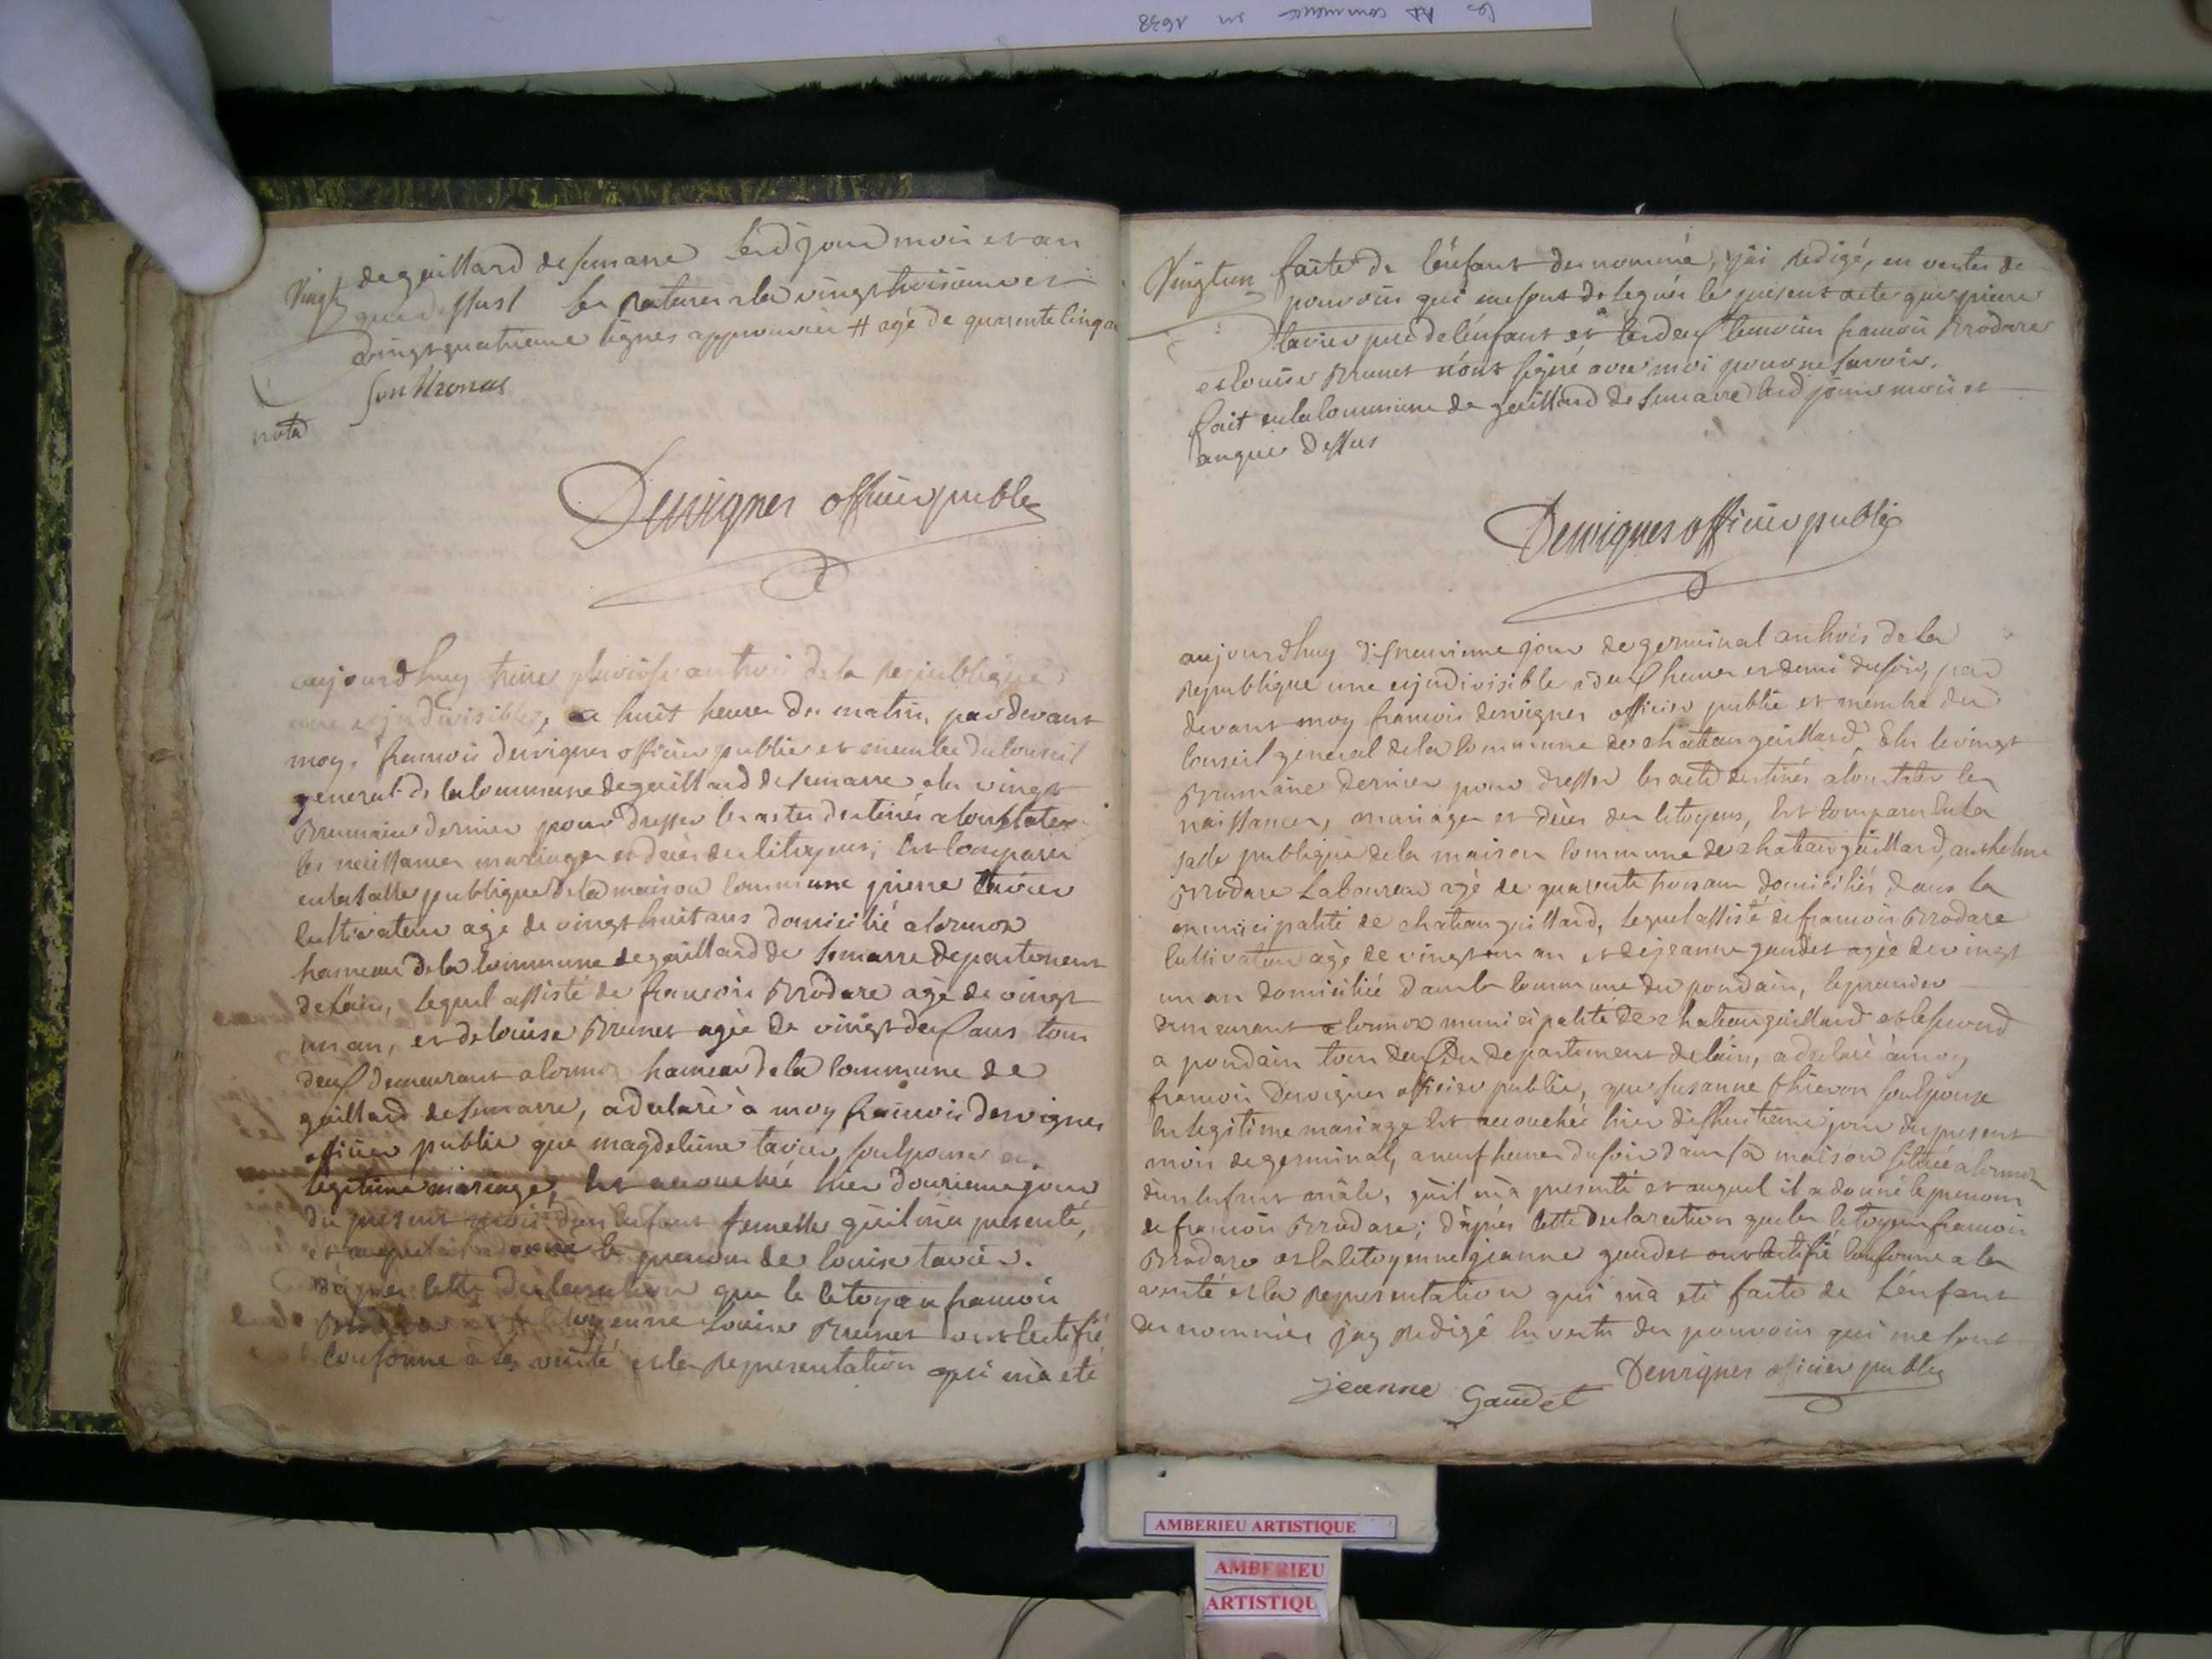 les commence en 1638
Vingt
de gaillard de semane led jour mois et an
que dessus les ratures a la vingt troisieme et
vingt quatrieme lignes approuvées # agé de quarente cinq an
nota
Dervignes officier public
aujourdhuy treize pluviose an trois de la republique
une et indivisible, a huit heures du matin, par devant
moy, francois dervignes officier public et membre du conseil
general de la commune de gaillard de semane elu vingt
Brumaire dernier pour dresser les actes destinés a constater
les naissances mariages et deces des citoyens, est comparu
en la salle publique de la maison commune pierre tavier
cultivateur agé de vingt huit ans domicilié a cormoz
hameau de la commune de gaillard de semane departement
de lain, lequel assisté de francois Brodare agé de vingt
un an, et de louise Brunet agée de vingt deux ans tous
deux demeurant a cormoz hameau de la commune de
gaillard de semane, a declaré à moy francois dervignes
officier public que magdeleine tavier son epouse en
legitime mariage, est accouchée hier douzieme jour
du present mois dun enfant femelle quil m'a presenté,
et auquel il a donné le prenom de louise tavier.
d'apres cette declaration que le citoyen francois
Brodare et la citoyenne louise Brunet ont certifié
conforme à la verité et la representation qui m'a eté
Vingt un
faite de l'enfant denommé, j'ai redigé, en vertu des
pouvoirs qui me sont delegués le present acte que pierre
tavier pere de l'enfant et les deux temoins francois Brodare
et louise Brunet n'ont signé avec moi pour ne savoir.
fait en la commune de gaillard de semane led jour mois et
an que dessus
Dervignes officier public
aujourdhuy dixneuvieme jour de germinal an trois de la
republique une et indivisible a deux heures et demi du soir, par
devant moy francois dervignes officier public et membre du
conseil general de la commune de chateaugaillard, elu le vingt
Brumaire dernier pour dresser les acte destinés a constater les
naissances, mariages et deces des citoyens, est comparu en la
salle publique de la maison commune de chateaugaillard, anthelme
Brodare laboureur agé de quarente trois ans domiciliés dans la
municipalité de chateaugaillard, lequel assisté de francois Brodare
cultivateur agé de vingt un an et de jeanne gaudet agée de vingt
un an domiciliée dans la commune du pondain, le premier
demeurant a cormoz municipalité de chateaugaillard et le second
a pondain tous deux du departement de lain, a declaré à moy
francois dervignes officier public, que susanne thievon son epouse
en legitime mariage est accouchée hier dixhuitieme jour du present
mois de germinal, a neuf heures du soir dans sa maison située a cormoz
dun enfant mâle, qu'il m'a presenté et auquel il a donné le prenom
de francois Brodare; d'aprés cette declaration que le citoyen francois
Brodare et la citoyenne jeanne gaudet ont certifié conforme a la
verité et la representation qui m'a eté faite de l'enfant
denommé, jay redigé en vertu des pouvoirs qui me sont
jeanne Gaudet
Dervignes oficier public
AMBERIEU ARTISTIQUE
AMBERIEU
ARTISTIQU